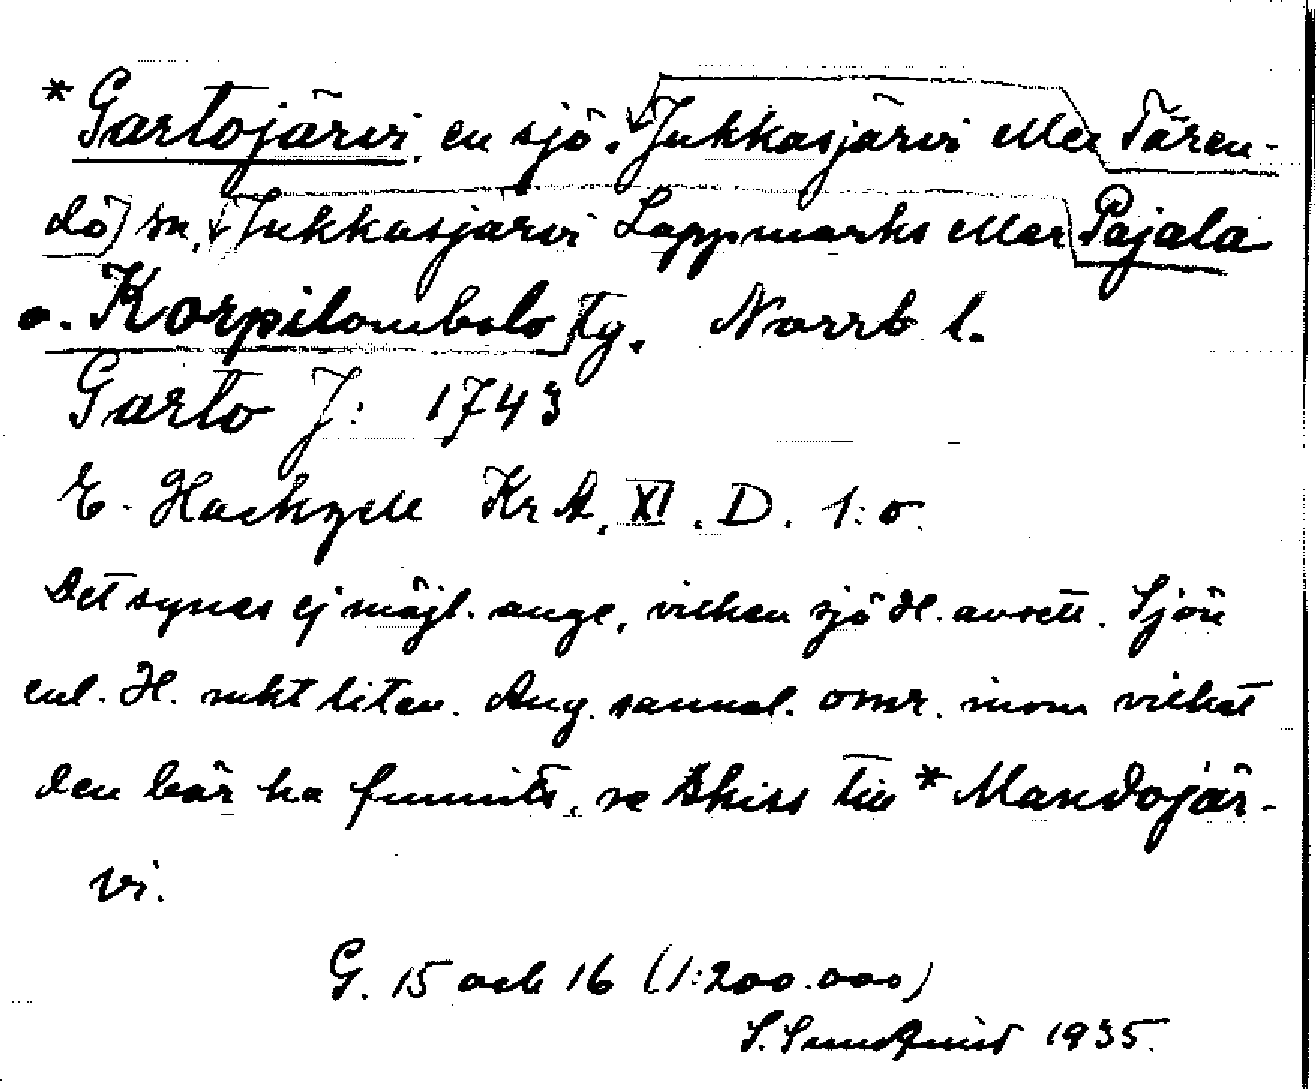 *Gartojärvi, en sjö. Jukkasjärvi eller Tären-
dö] sn, Jukkasjärvi Lappmarks eller Pajala
o. Korpilombolo] tg. Norrb l.
Garto J: 1743
E. Hackzell KrA. XI. D. 1:o.
Det synes ej möjl. ange, vilken sjö H. avsett. Sjön
enl. H. mkt liten. Ang. sannol. omr. inom vilket
den bör ha funnits, se skiss till *Mandojär-
vi.
G. 15 och 16 (1:200.000)
S. Sundquist 1935.